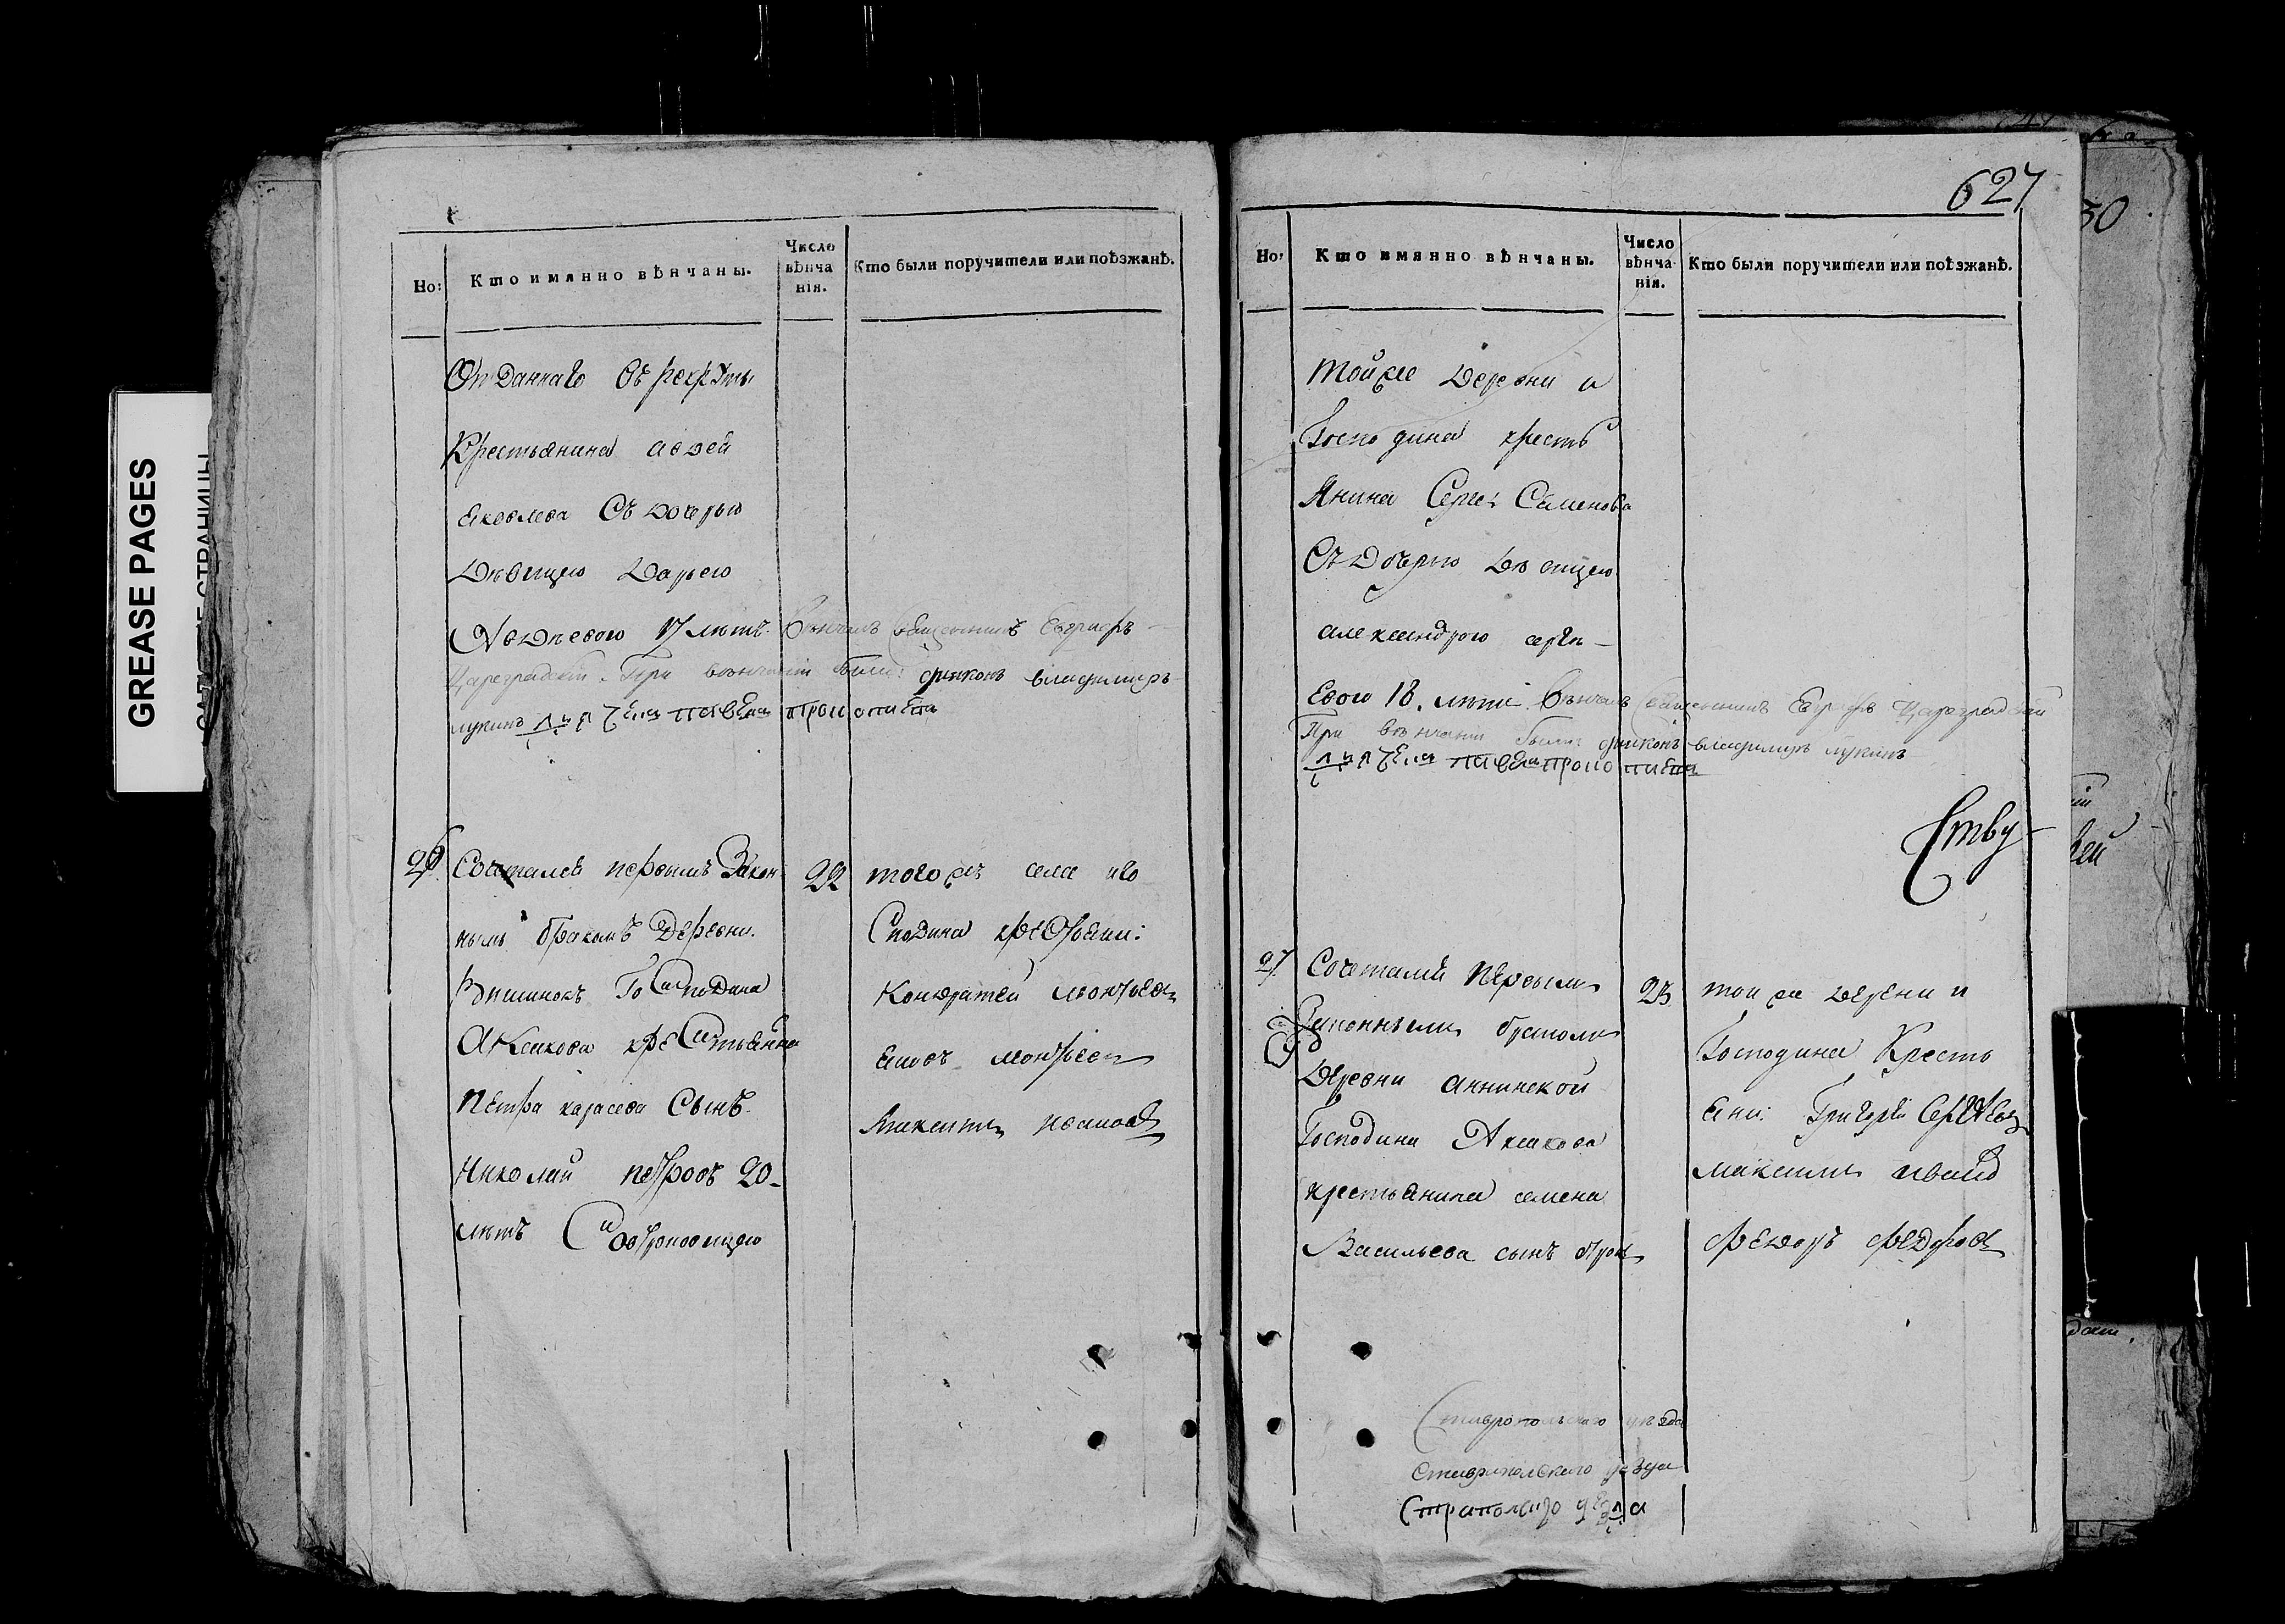 GREASE PAGES
Но:
Кто имянно вѣнчаны.
Число
вѣнча
нія.
Кто были поручители или поѣзжанѣ.
Отданнаго въ рекруты
Крестьянина авдей
яковлева Съ дочерью
дѣвицею дарьею
Авдѣевою 17 лѣтъ. Вѣнчалъ Священникъ Евграфъ
Цареградскій. При вѣнчаніи были: дьяконъ владимиръ
лукинъ
26 Сочтался первымъ Закон
22
нымъ бракомъ Деревни
Господина
Аксакова крестьянина
Петра карасева Сынъ
Николай петровъ 20
лѣтъ
тогожъ села иго
Сподина крестьяни:
Кондратей леонтьевъ
леонтьевъ
627
Но:
Кто имянно вѣнчаны.
Число
вѣнча
нія.
Кто были поручители или поѣзжанѣ.
тойже деревни и
Господина кресть
янина Сергея Семенова
Съ дочерью дѣвицею
александрою сергѣ
евою 18. лѣтъ Вѣнчалъ Священникъ Евграфъ Цареградскій
При вѣнчаніи были: дьяконъ владимиръ лукинъ
Ству
27 Сочетался первымъ
23
Законнымъ бракомъ
деревни аннинской
Господина Аксакова
крестьянина семена
Васильева сынъ
той же деревни и
Господина Кресть
яни: Григорей Сергѣевъ
максимъ
федоръ федоровъ
Ставропольскаго уѣзда
Ставропольскаго уѣзда
30